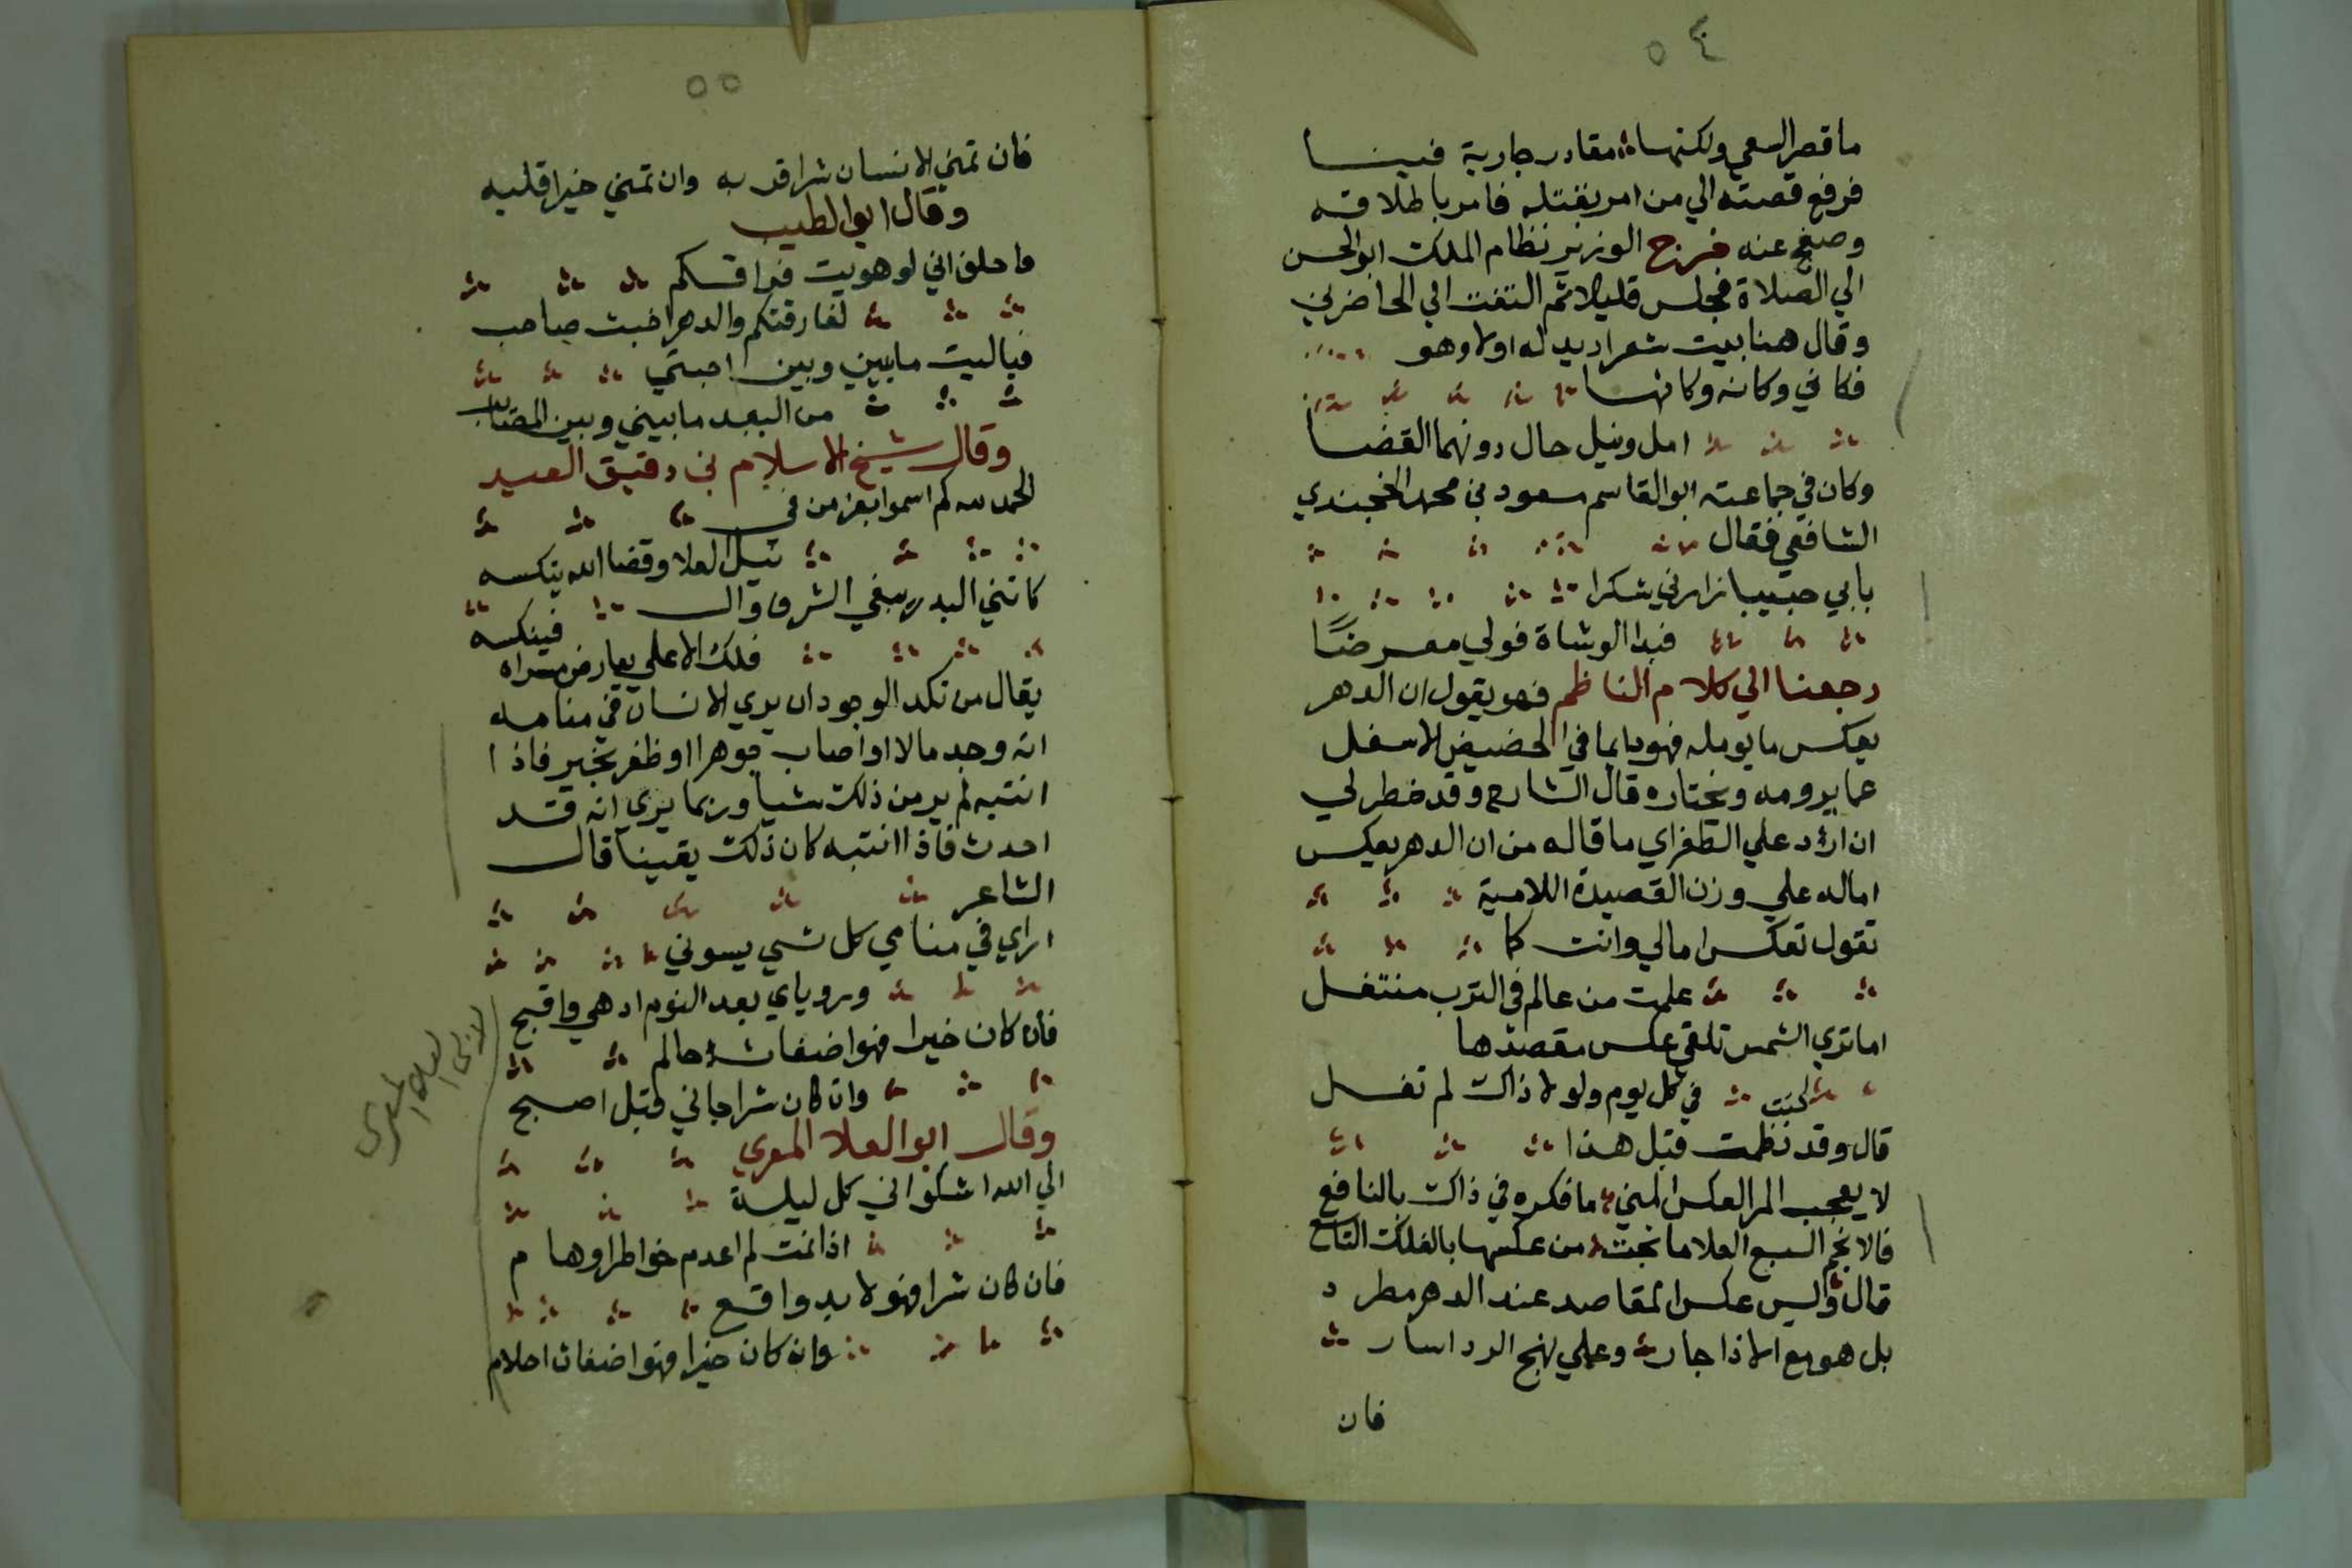 ٥٤
ما قصر السعي ولكنها مقادير جارية فينا
فرفع قصته الي من امر بقتله فامر باطلاقه
وصفح عنه خرج الوزير نظام الملك ابو الحسن
الي الصلاة فجلس قليلا ثم التفت الي الحاضرين
وقال هنا بيت شعر اريد له اولا وهو
فكاني وكانه وكانها
امل ونيل حال دونهما القضا
وكان في جماعته ابو القاسم مسعود بن محمد الخجندي
الشافعي فقال
بابي حبيبا زارني شكرا
فبدا الوشاة فولي معرضًا
رجعنا الي كلام الناظم فهو يقول ان الدهر
يعكس ما يومله فهو دايما في الحضيض الاسفل
عما يرومه ويختاره قال الشارح وقد خطر لي
ان ارد علي الطغراي ما قاله من ان الدهر يعكس
اماله علي وزن القصيدة اللامية
تقول تعكس امالي وانت كما
علمت من عالم في الترب منتفل
اما تري الشمس تلقي عكس مقصدها
في كل يوم ولولا ذاك لم تفل
قال وقد نظمت قبل هذا
لا يعجب المر العكس المني ما فكره في ذاك بالنافع
فالانجم السبع العلا ما نجت من عكسها بالفلك التاسع
قال وليس عكس المقاصد عند الدهر مطرد
بل هو مع الاذا جار وعلي نهج الردا سار
فان
٥٥
فان تمني الانسان شرا قربه وان تمني خيرا قلبه
وقال ابو الطيب
واحلف اني لو هويت فراقكم
لفارقتكم والدهر اخبث صاحب
فياليت ما بيني وبين احبتي
من البعد ما بيني وبين المصائب
وقال شيخ الاسلام بن دقيق العيد
الحمد لله كم اسموا بعزمي في
نيل العلا وقضا الله ينكسه
كانني البدر يبغي الشرق وال
فلك الاعلي يعارض مسراه فينكسه
يقال من نكد الوجود ان يري الانسان في منامه
انه وجد مالا او اصاب جوهرا او ظفر بخير فاذا
انتبه لم ير من ذلك شيا وربما يري انه قد
احدث فاذا انتبه كان ذلك يقينا قال
الشاعر
اراي في منامي كل شي يسوني
ورؤياي بعد النوم ادهي واقبح
فان كان خيرا فهو اضغاث حالم
وان كان شرا جاني قبل اصبح
وقال ابو العلا المعري
الي الله اشكو انني كل ليلة
اذا نمت لم اعدم خواطر اوهام
فان كان شرا فهو لا بد واقع
وان كان خيرا فهو اضغاث احلام